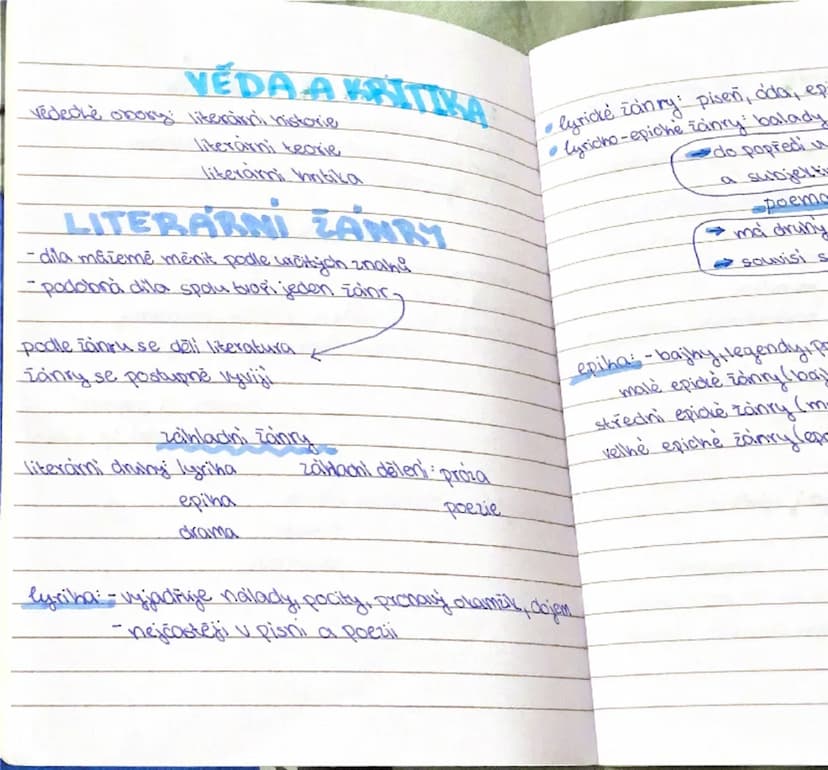 VĚDA A KRITIKA
vědecké obory: literární historie
literární teorie
literární kritika
LITERÁRNÍ ŽÁNRY
- díla můžeme měnit podle určitých znaků
- podobná díla spolu tvoří jeden žánr
podle žánru se dělí literatura
žánry se postupně vyvíjí
základní žánry
literární druhy lyrika základní dělení: próza
epika poezie
drama
lyrika: - vyjadřuje nálady, pocity, prchavý okamžik, dojem
- nejčastěji v písni a poezii
• lyrické žánry: píseň, óda, ep
• lyricko-epické žánry: balady
→ do popředí
a subjekti
poema
→ má druhy
→ souvisí s
epika: - bajky, legendy, po
malé epické žánry (baj
střední epické žánry (
velké epické žánry (epo